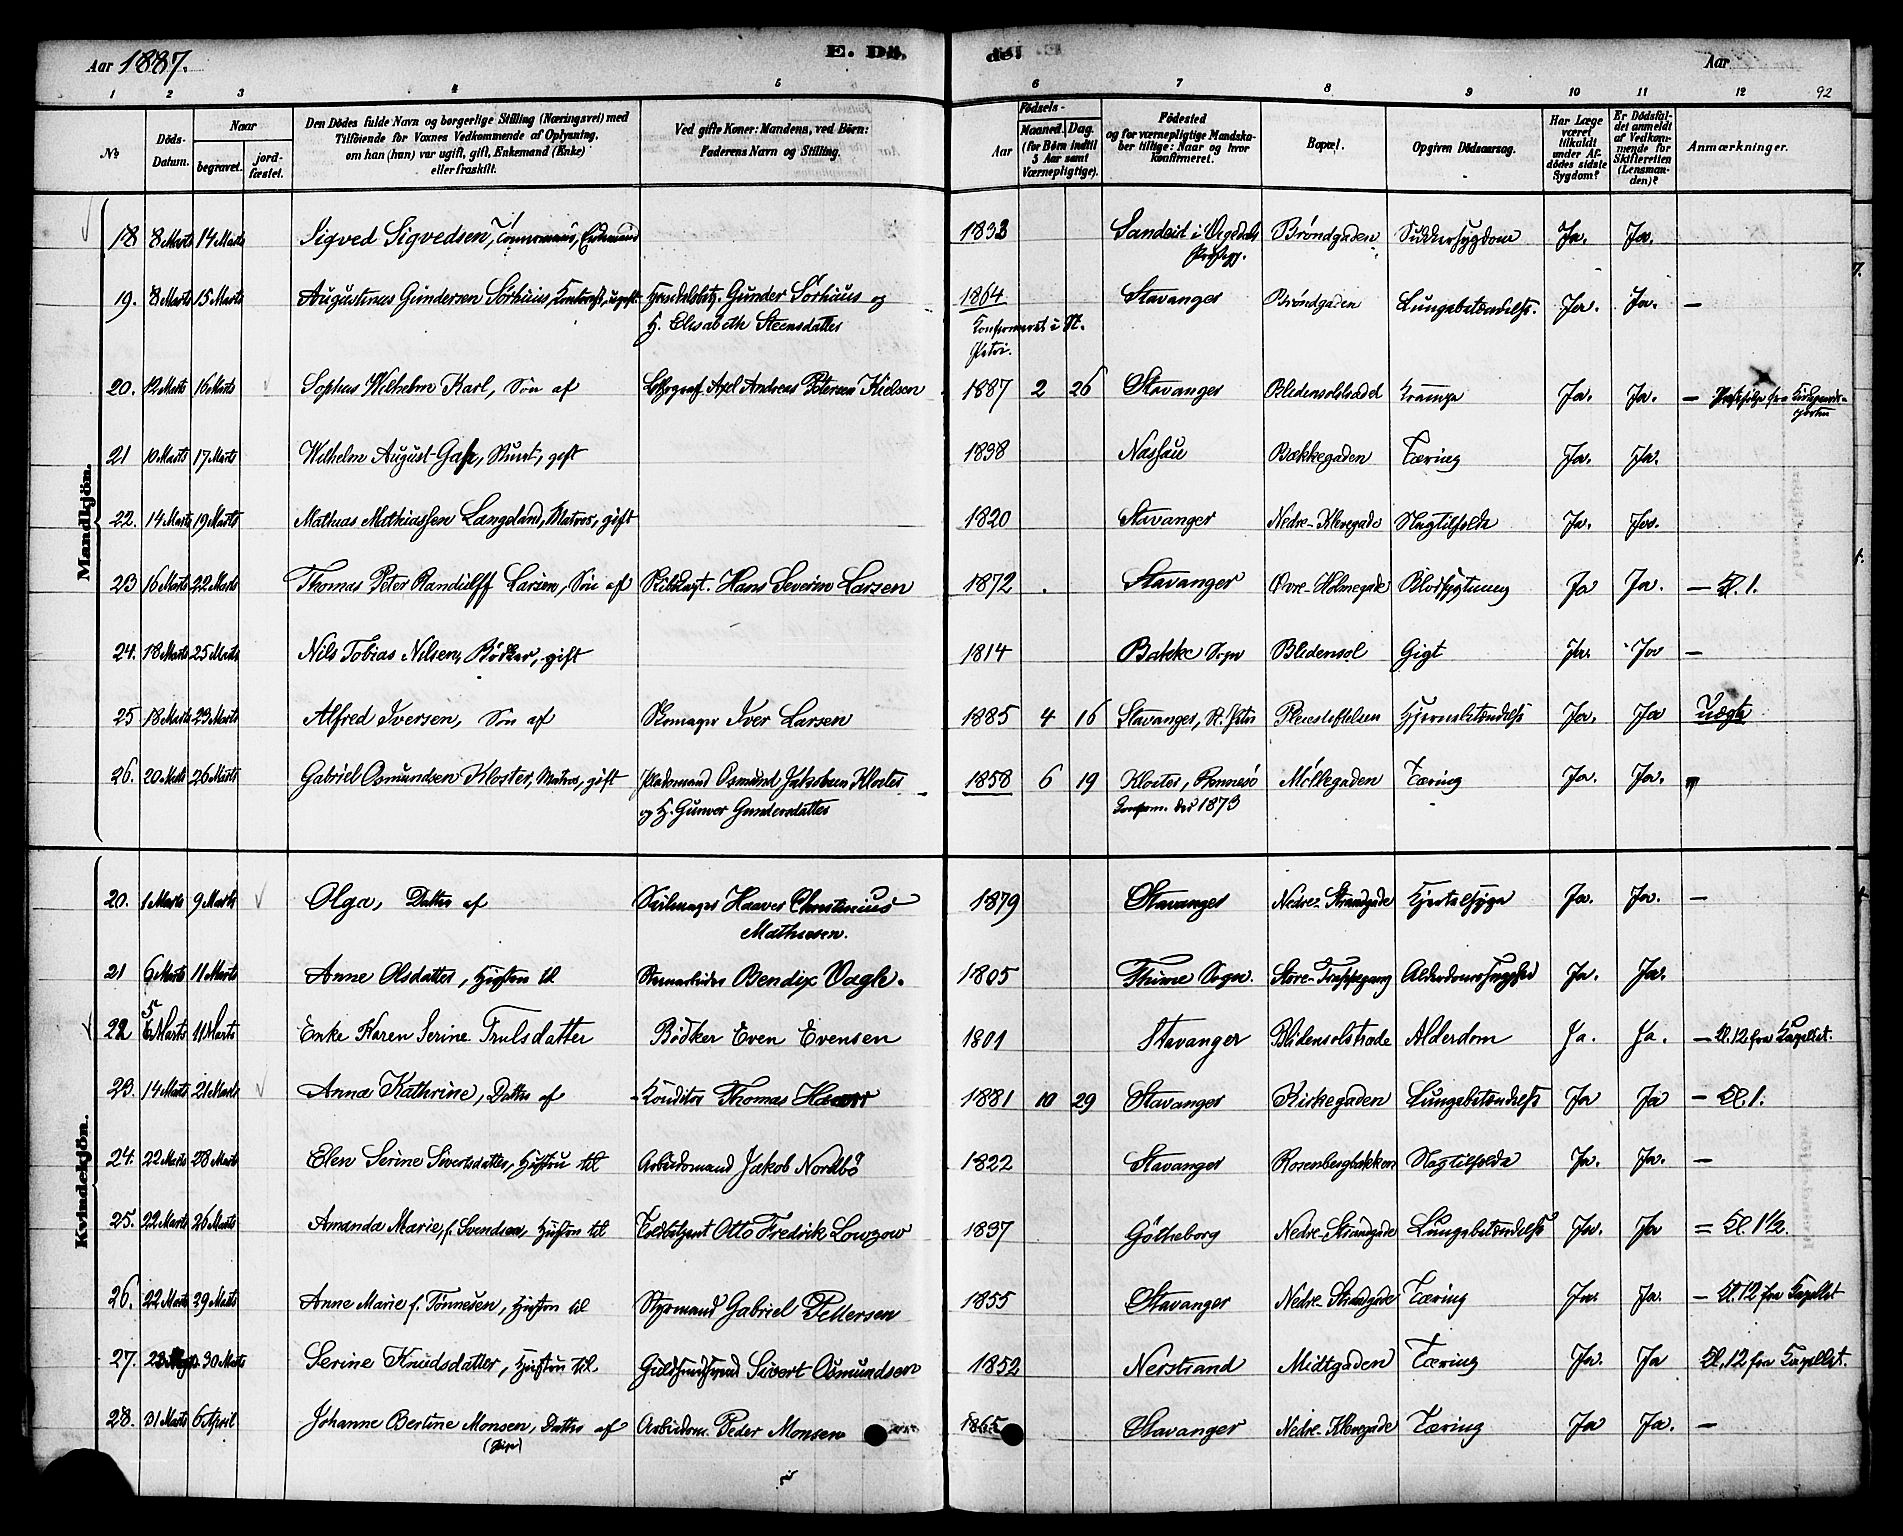 Aar 1887.
E. Dö. del
Aar
92
1 2 3 4 5 6 7 8 9 10 11 12
№
Döds-Datum.
Naar
begravet.
jord-fæstet.
Den Dödes fulde Navn og borgerlige Stilling (Næringsvei) med
Tilföiende for Voxnes Vedkommende af Oplysning,
om han (hun) var ugift, gift, Enkemand (Enke)
eller fraskilt.
Ved gifte Koner: Mandens, ved Börn:
Faderens Navn og Stilling.
Födsels-
Aar
Maaned. Dag.
(for Börn indtil
5 Aar samt
Værnepligtige).
Födested
og for værnepligtige Mandska-
ber tillige: Naar og hvor
konfirmeret.
Bopæl.
Opgiven Dödsaarsag.
Har Læge
været
tilkaldt
under Af-
dödes sidste
Sygdom?
Er Dödsfal-
det anmeldt
af Vedkom-
mende for
Skifteretten
(Lensman-
den)?
Anmærkninger.
Mandkjön.
18 8 Marts 14 Marts Sigved Sigvedsen, Tømmermand, Enkemand 1833 Sandeid i Vigedals Brøndgaden Sukkersygdom Ja. Ja.
Præstegj.
19. 8 Marts 15 Marts Augustinus Gundersen Sörhuus, ugift Gunder Sørhuus og 1864 Stavanger Brøndgaden Lungebetændelse. Ja. Ja. —
H. Elisabeth Steensdatter Konfirmeret i St.
Petri.
20. 12 Marts 16 Marts Sophus Wilhelm Karl, Søn af Lithograf. Axel Andreas Petersen Kielsen 1887 2 26 Stavanger Blidensolstrædet Krampe Ja. Ja. —
21 10 Marts 17 Marts Wilhelm August gift 1838 Nassau Bækkegaden Tæring Ja. Ja.
22. 14 Marts 19 Marts Mathias Mathiassen Langeland, Matros, gift 1820 Stavanger Nedre-Klevegade Slagtilfælde Ja. Ja.
23 16 Marts 22 Marts Thomas Peter Randulff Larsen, Søn af Hans Severin Larsen 1872 Stavanger Øvre-Holmegade Blodforgiftning Ja Ja. — Kl. 1.
24. 18 Marts 25 Marts Nils Tobias Nilsen, Bödker, gift 1814 Bakke Sogn Blidensol Gigt Ja. Ja —
25 18 Marts 23 Marts Alfred Iversen, Søn af Skomager Iver Larsen 1885 4 16 Stavanger, St. Petri Pleiestiftelsen Hjernebetændelse Ja. Ja Uægte
26. 20 Marts 26 Marts Gabriel Osmundsen Kloster, Matros, gift Osmund Jakobsen Kloster 1858 6 19 Kloster, Rennesø Møllegaden Tæring Ja. Ja.
og H. Gunver Gundersdatter Konfirm. der 1873
Kvindekjön.
20. 1 Marts 9 Marts Olga, Datter af Seilmager Haaver Christinius 1879 Stavanger Nedre-Strandgade Hjertesyge Ja. Ja. —
Mathiesen.
21 6 Marts 11 Marts Anne Olsdatter, Hustru til Bendix Vagle. 1805 Thime Sogn Store-Trappegang Alderdomssvaghed Ja. Ja.
5
22 6 Marts 11 Marts Enke Karen Serine Trulsdatter Bødker Even Evensen 1801 Stavanger Blidensolstræde Alderdom Ja. Ja. — Kl. 12 fra Kapellet.
23. 14 Marts 21 Marts Anna Kathrine, Datter af Konditor Thomas Haarr 1881 10 29 Stavanger Kirkegaden Lungebetændelse Ja Ja — Kl. 1.
24. 22 Marts 28 Marts Elen Serine Sivertsdatter, Hustru til Arbeidsmand Jakob Nordbø 1822 Stavanger Rosenbergbakken Slagtilfælde Ja. Ja. —
25. 22 Marts 26 Marts Amanda Marie, f. Svendsen, Hustru til Toldbetjent Otto Fredrik Lowzow 1837 Götheborg Nedre-Strandgade Lungebetændelse Ja. Ja = Kl. 1½.
26. 22 Marts 29 Marts Anne Marie f. Tønnesen, Hustru til Styrmand Gabriel Pettersen 1855 Stavanger Nedre Strandgade Tæring Ja. Ja. — Kl. 12 fra Kapellet
27. 23 30 Marts Serine Knudsdatter, Hustru til Guldsmedsvend Sivert Osmundsen 1852 Nerstrand Midtgaden Tæring Ja. Ja Kl. 12 fra Kapellet.
28. 31 Marts 6 April Johanne Bertine Monsen, Datter af Arbeidsm. Peder Monsen 1865 Stavanger Nedre-Klevegade Tæring Ja Ja. —